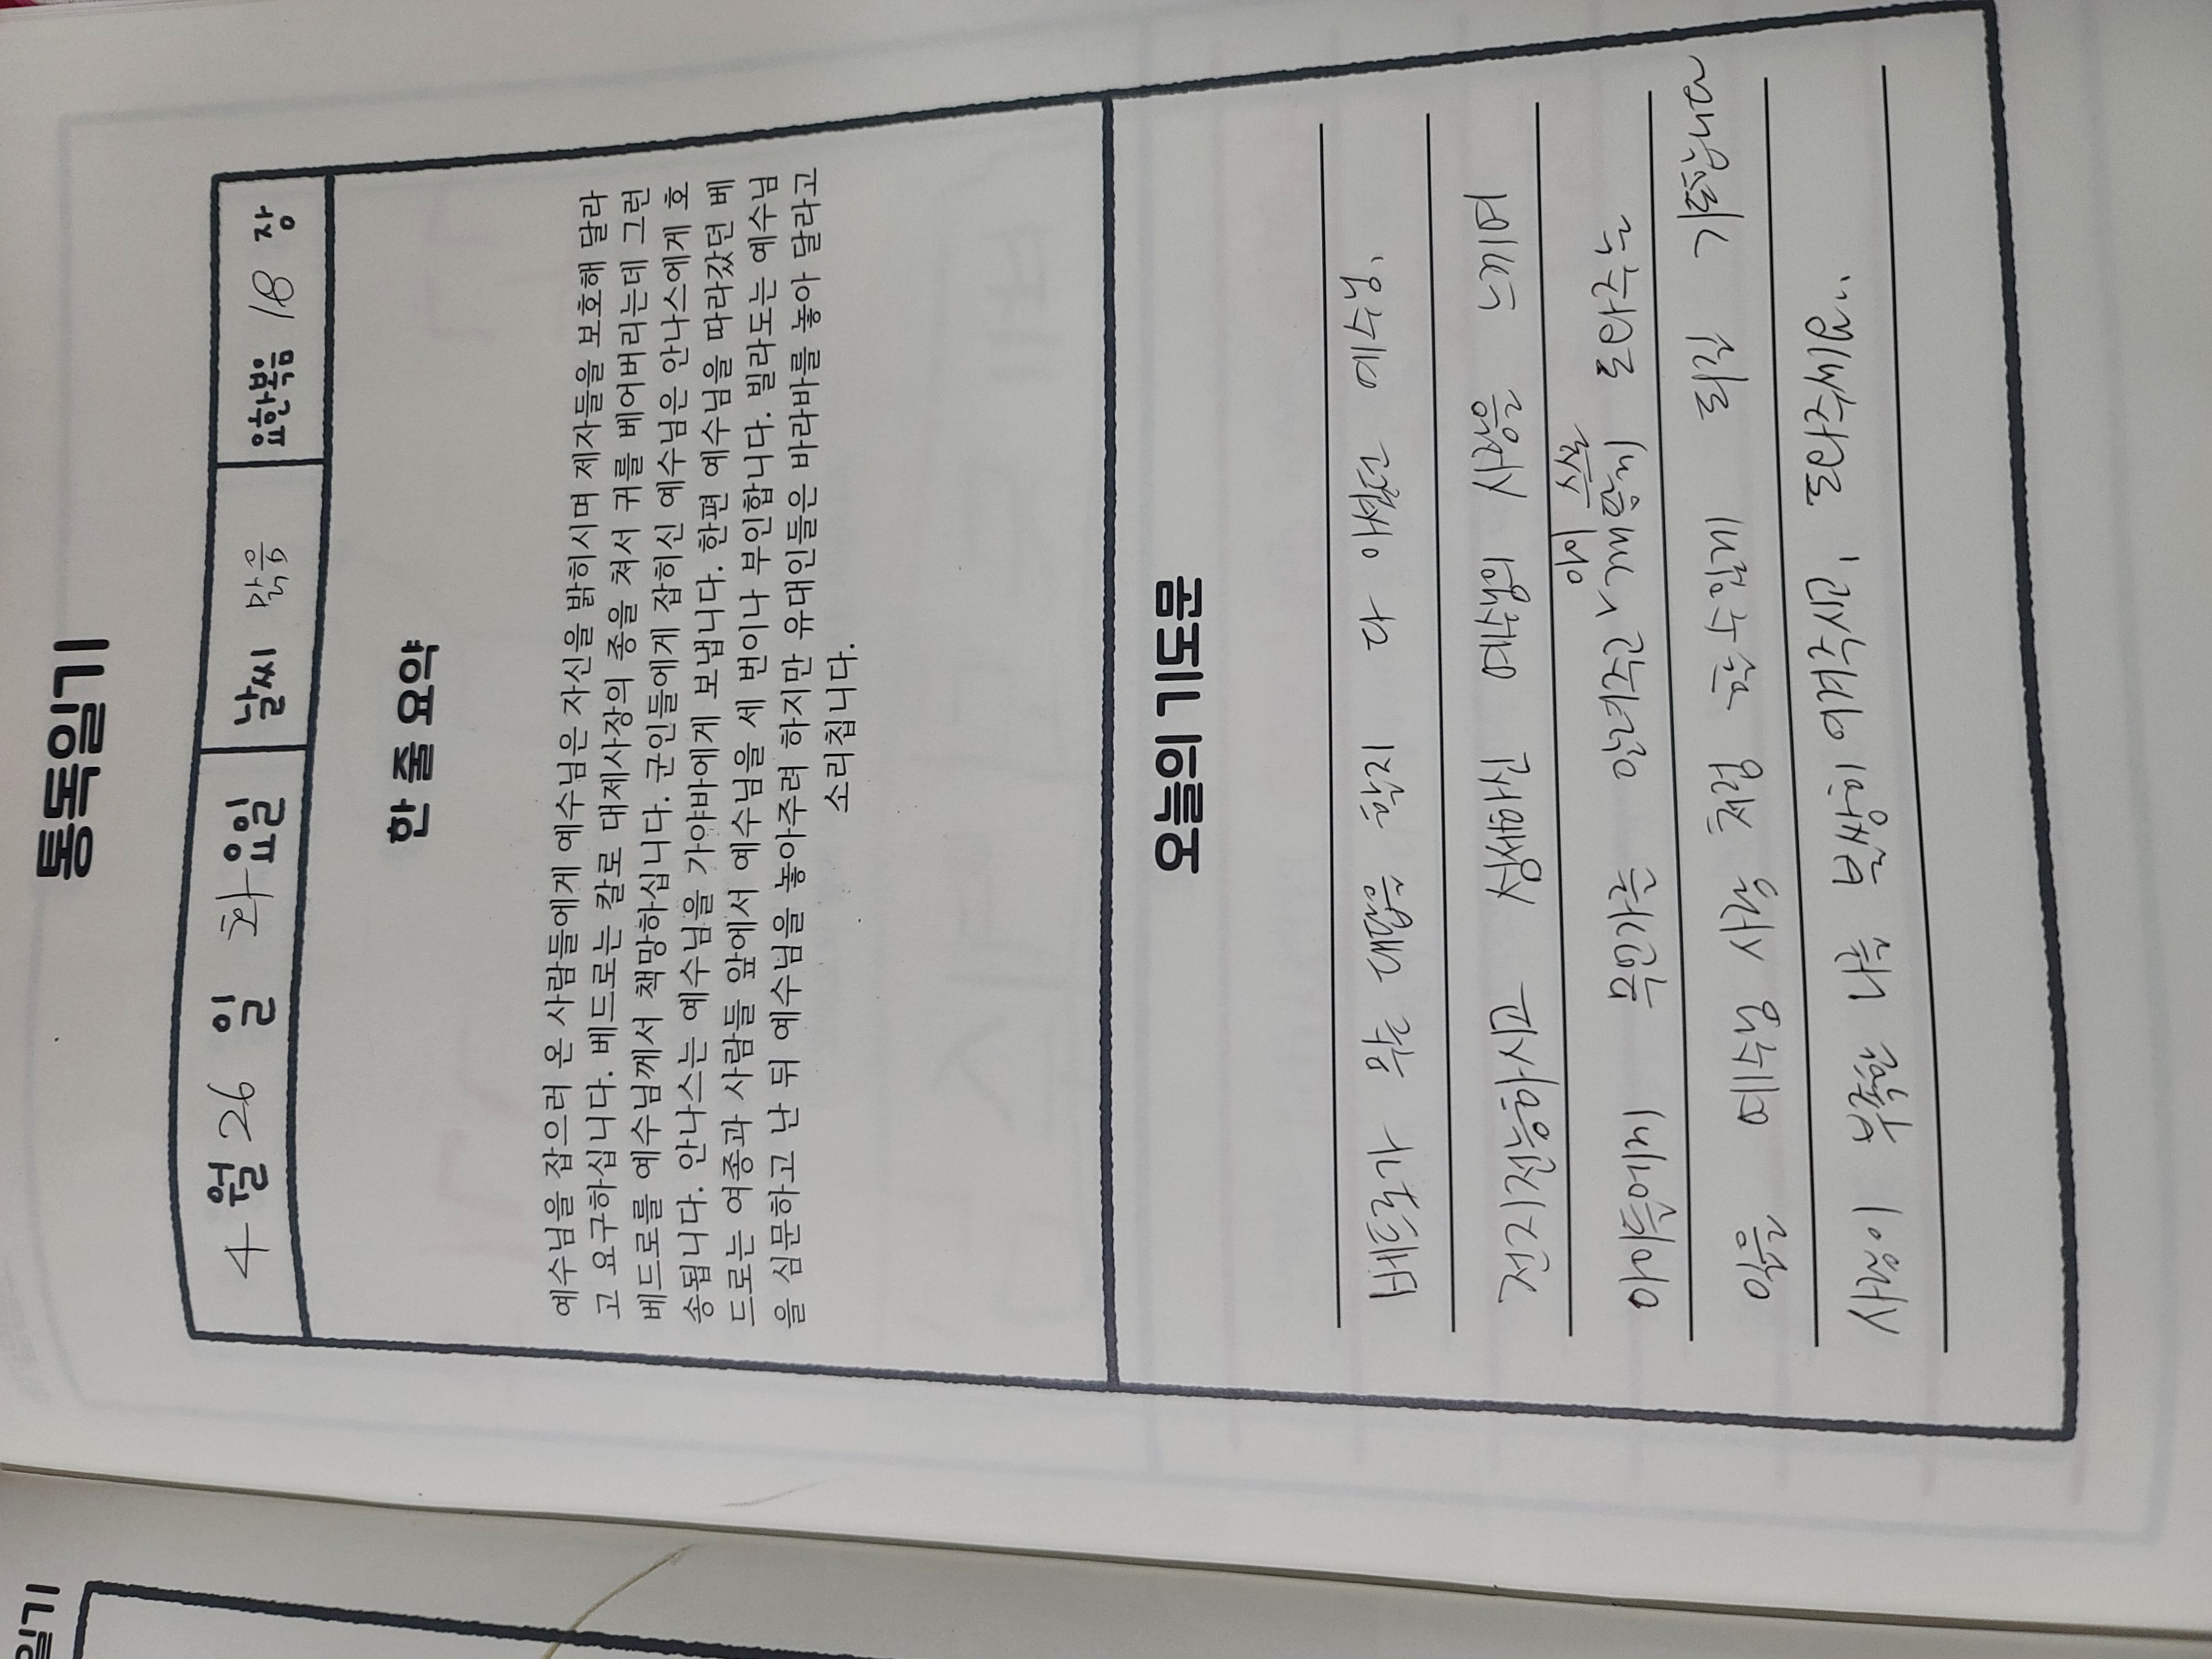 통독일기
4월 26일 화요일 날씨 맑음 요한복음 18 장
한 줄 요약
예수님을 잡으러 온 사람들에게 예수님은 자신을 밝히시며 제자들을 보호해 달라
고 요구하십니다. 베드로는 칼로 대제사장의 종을 쳐서 귀를 베어버리는데 그런
베드로를 예수님께서 책망하십니다. 군인들에게 잡히신 예수님은 안나스에게 호
송됩니다. 안나스는 예수님을 가야바에게 보냅니다. 한편 예수님을 따라갔던 베
드로는 여종과 사람들 앞에서 예수님을 세 번이나 부인합니다. 빌라도는 예수님
을 심문하고 난 뒤 예수님을 놓아주려 하지만 유대인들은 바라바를 놓아 달라고
소리칩니다.
오늘의 기도문
베드로가 무슨 대답을 할지 다 아셨던 예수님.
전지전능하시고 섬세하신 예수님 사랑을 느끼며
아이들에게 무언가를 알려주고 깨닫게 도와주는
일을 예수님 사랑 처럼 할 수 있게 되길 기도합니다
사랑이 부족한 나를 불쌍히 여겨주시고, 도와주세요..
일기